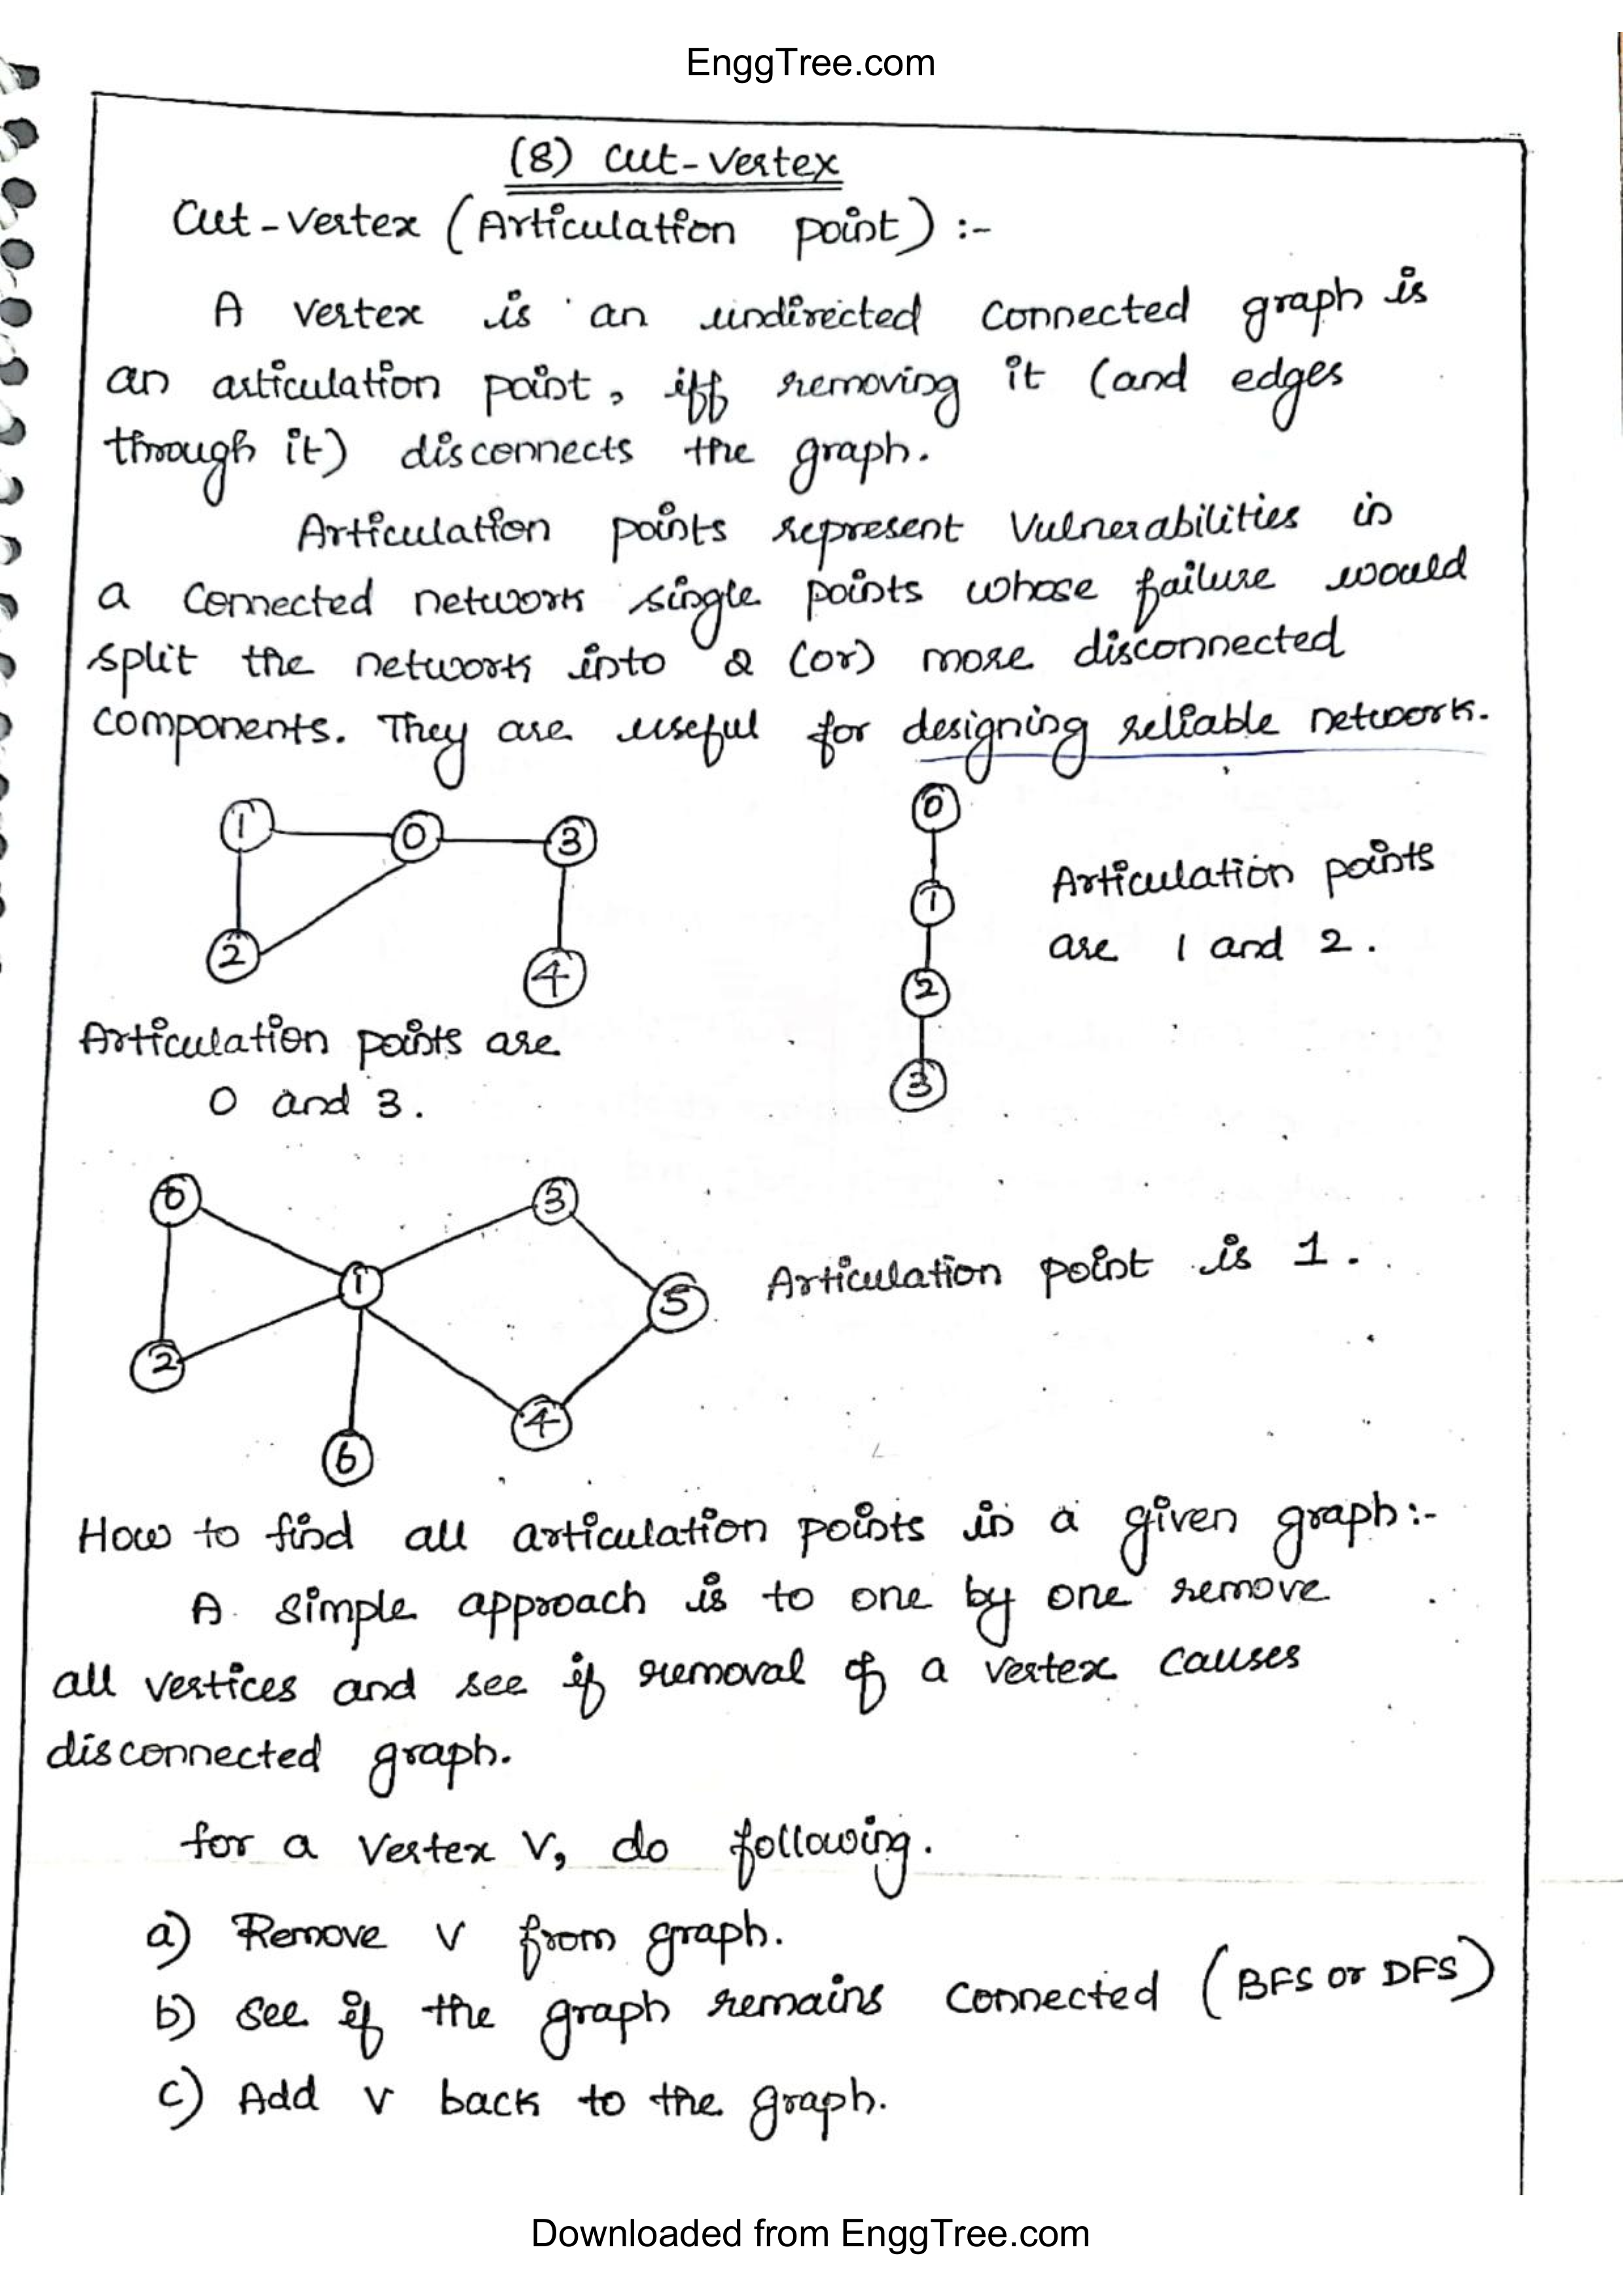 EnggTree.com
(8) Cut-Vertex
Cut-Vertex (Articulation point) :-
A vertex is an undirected connected graph is
an articulation point, iff removing it (and edges
through it) disconnects the graph.
Articulation points represent Vulnerabilities in
a connected network single points whose failure would
split the network into 2 (or) more disconnected
components. They are useful for designing reliable network.
1 0 3
2 4
Articulation points are
0 and 3.
0
1
2
3
Articulation points
are 1 and 2.
0 3
1 5
2 4
6
Articulation point is 1.
How to find all articulation points in a given graph:-
A simple approach is to one by one remove
all vertices and see if removal of a vertex causes
disconnected graph.
for a vertex V, do following.
a) Remove v from graph.
b) See if the graph remains connected (BFS or DFS)
c) Add v back to the graph.
Downloaded from EnggTree.com